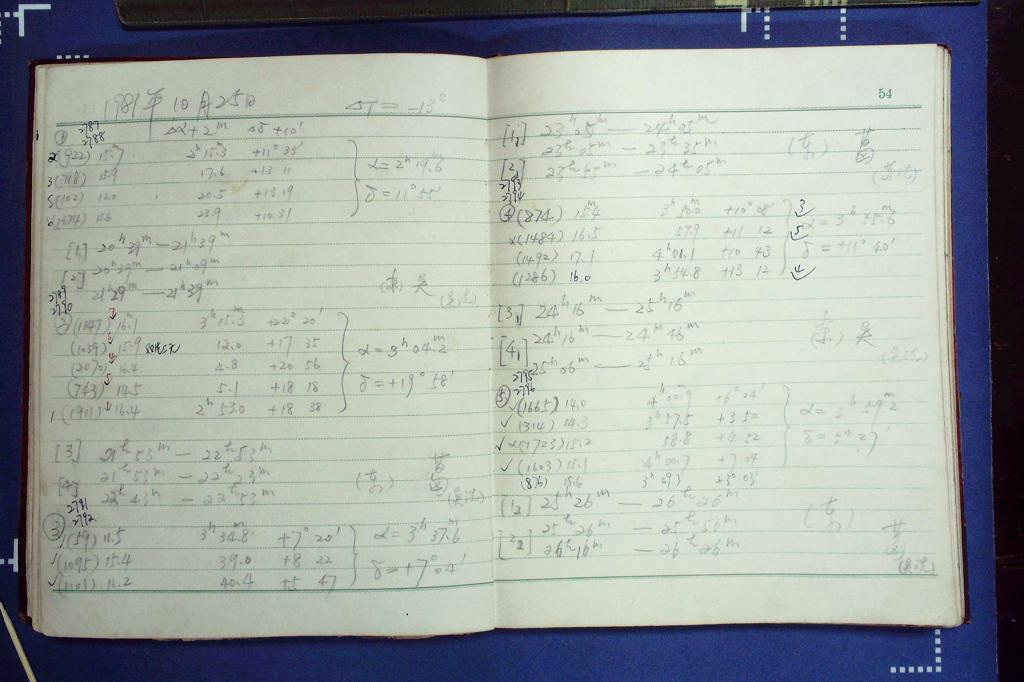 1981年10月25日 ΔT = -13°
2787
2788
① Δα+2ᵐ Δδ+10′
2(922) 15.7 2ʰ15.3 +11° 33′
3(718) 15.9 17.6 +13 11
5(102) 12.0 20.5 +13 19
6(1674) 15.6 23.9 +10.31
α=2ʰ19.6ᵐ
δ=11°55′
[1] 20ʰ39ᵐ — 21ʰ39ᵐ
[2] 20ʰ39ᵐ — 21ʰ09ᵐ
21ʰ29 — 21ʰ39ᵐ
(东) 吴
2789
2790
② (1147) 16.1 3ʰ15.3ᵐ +22° 20′
(1039) 15.9 12.0 +17 35
(2070) 16.4 4.8 +20 56
(743) 14.5 5.1 +18 18
1 (1911) 16.4 2ʰ53.0 +18 38
α=3ʰ04.2ᵐ
δ=+19°58′
[3] 21ʰ53ᵐ — 22ʰ53ᵐ
[4] 21ʰ53ᵐ — 22ʰ23ᵐ
22ʰ43ᵐ — 22ʰ53ᵐ
2791
2792
③ (59) 11.5 3ʰ34.8ᵐ +7° 20′
(1095) 15.4 39.0 +8 22
(1101) 16.2 40.4 +5 47
α=3ʰ37.6ᵐ
δ=+7°04′
54
[1₁] 23ʰ05ᵐ — 24ʰ05ᵐ
23ʰ05ᵐ — 23ʰ35ᵐ
[2₁] 23ʰ55ᵐ — 24ʰ05ᵐ
(东)
2793
2794
④ (874) 15.4 3ʰ50.0ᵐ +10°08′ 3
×(1484) 16.5 57.9 +11 12 5
(1492) 17.1 4ʰ01.1 +10 43
(1286) 16.0 3ʰ54.8 +13 12 4
α=3ʰ55.6ᵐ
δ=+11°40′
[3₁] 24ʰ16ᵐ — 25ʰ16ᵐ
[4₁] 24ʰ16ᵐ — 24ʰ46ᵐ
25ʰ06ᵐ — 25ʰ16ᵐ
(东) 吴
2795
2796
⑤ (1665) 14.0 4ʰ00.9 +6°24′
(314) 14.3 3ʰ57.5 +3 50
×(1723) 15.2 58.8 +4 52
(1603) 15.1 4ʰ00.7 +7 04
(876) 15.6 3ʰ49.3 +3°03′
α=3ʰ59.2ᵐ
δ=5°27′
[1₂] 25ʰ26ᵐ — 26ʰ26ᵐ
25ʰ26ᵐ — 25ʰ56ᵐ
[2₂] 26ʰ16ᵐ — 26ʰ26ᵐ